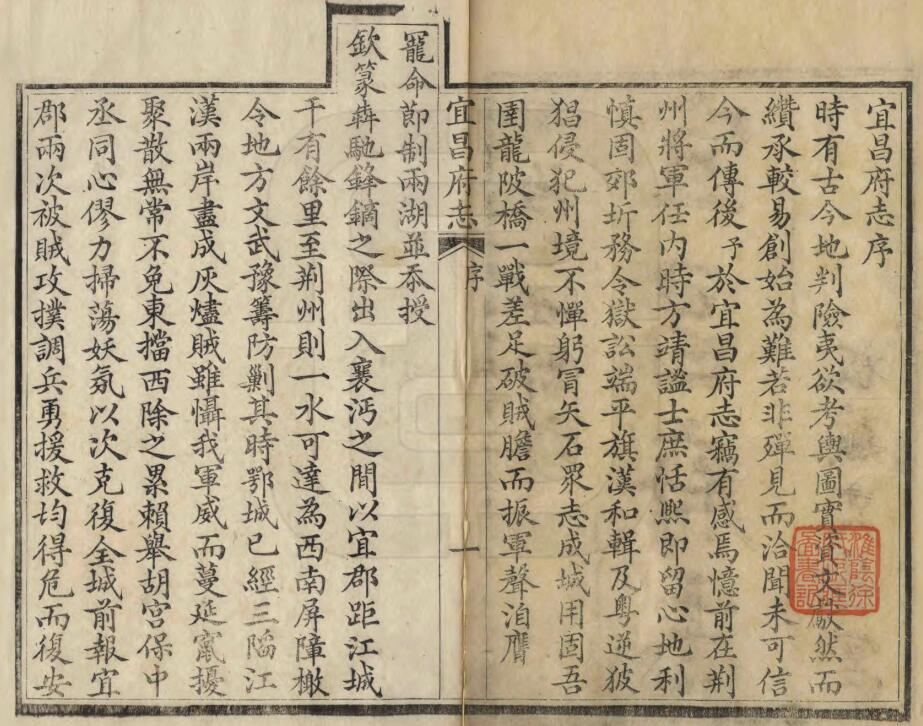 宜昌府志序
時有古今地判險夷欲考輿圖實資文獻然而
纘承較易創始為難若非殫見而洽聞未可信
今而傳後予於宜昌府志竊有感焉憶前在荆
州將軍任內時方靖謐士庶恬熙即留心地利
慎固郊圻務令獄訟端平旗漢和輯及粵逆披
猖侵犯州境不憚躬冒矢石眾志成城用固吾
圉龍陂橋一戰差足破賊膽而振軍聲洎膺
宜昌府志
序
一
寵命節制兩湖並忝授
欽篆犇馳鋒鏑之際出入襄沔之間以宜郡距江城
千有餘里至荆州則一水可達為西南屏障檄
令地方文武豫籌防剿其時鄂城已經三陷江
漢兩岸盡成灰燼賊雖懾我軍威而蔓延竄擾
聚散無常不免東擋西除之累賴舉胡宮保中
丞同心僇力掃蕩妖氛以次克復全城前報宜
郡兩次被賊攻撲調兵勇援救均得危而復安